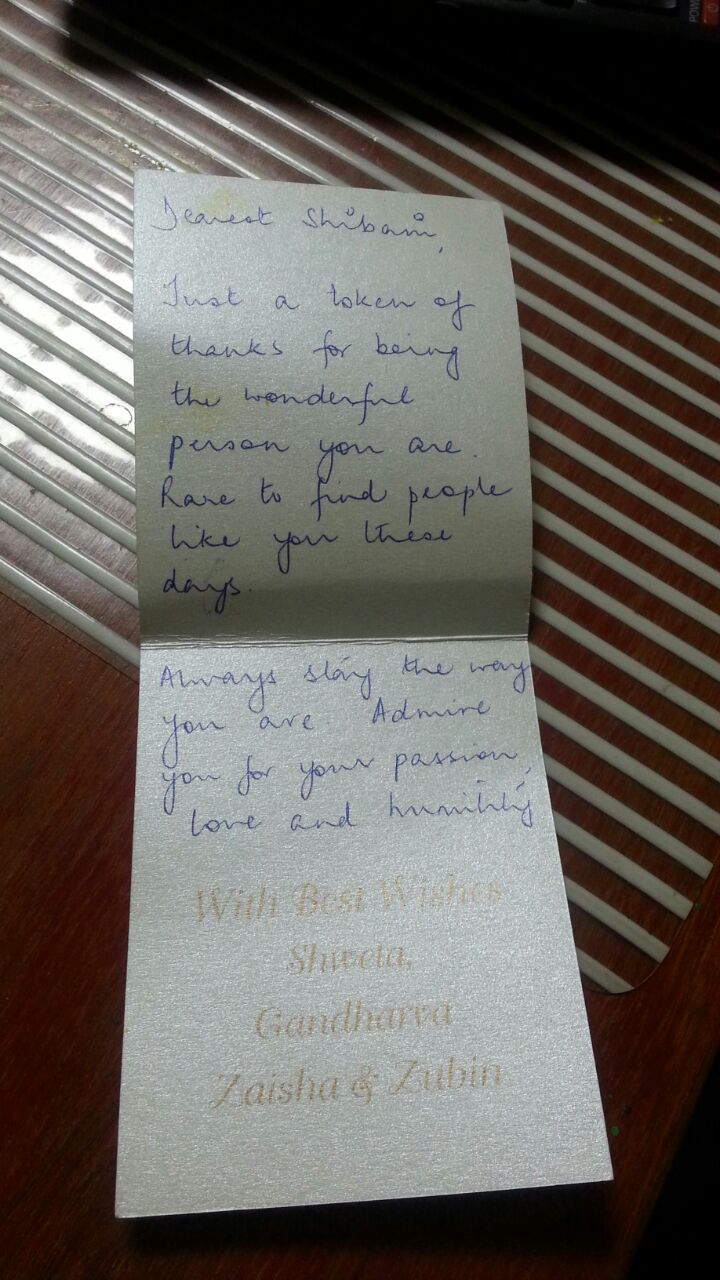 Dearest Shibani,
Just a token of
thanks for being
the wonderful
person you are.
Rare to find people
like you these
days.
Always stay the way
you are. Admire
you for your passion,
love and humility
With Best Wishes
Shweta,
Gandharva
Zaisha & Zubin